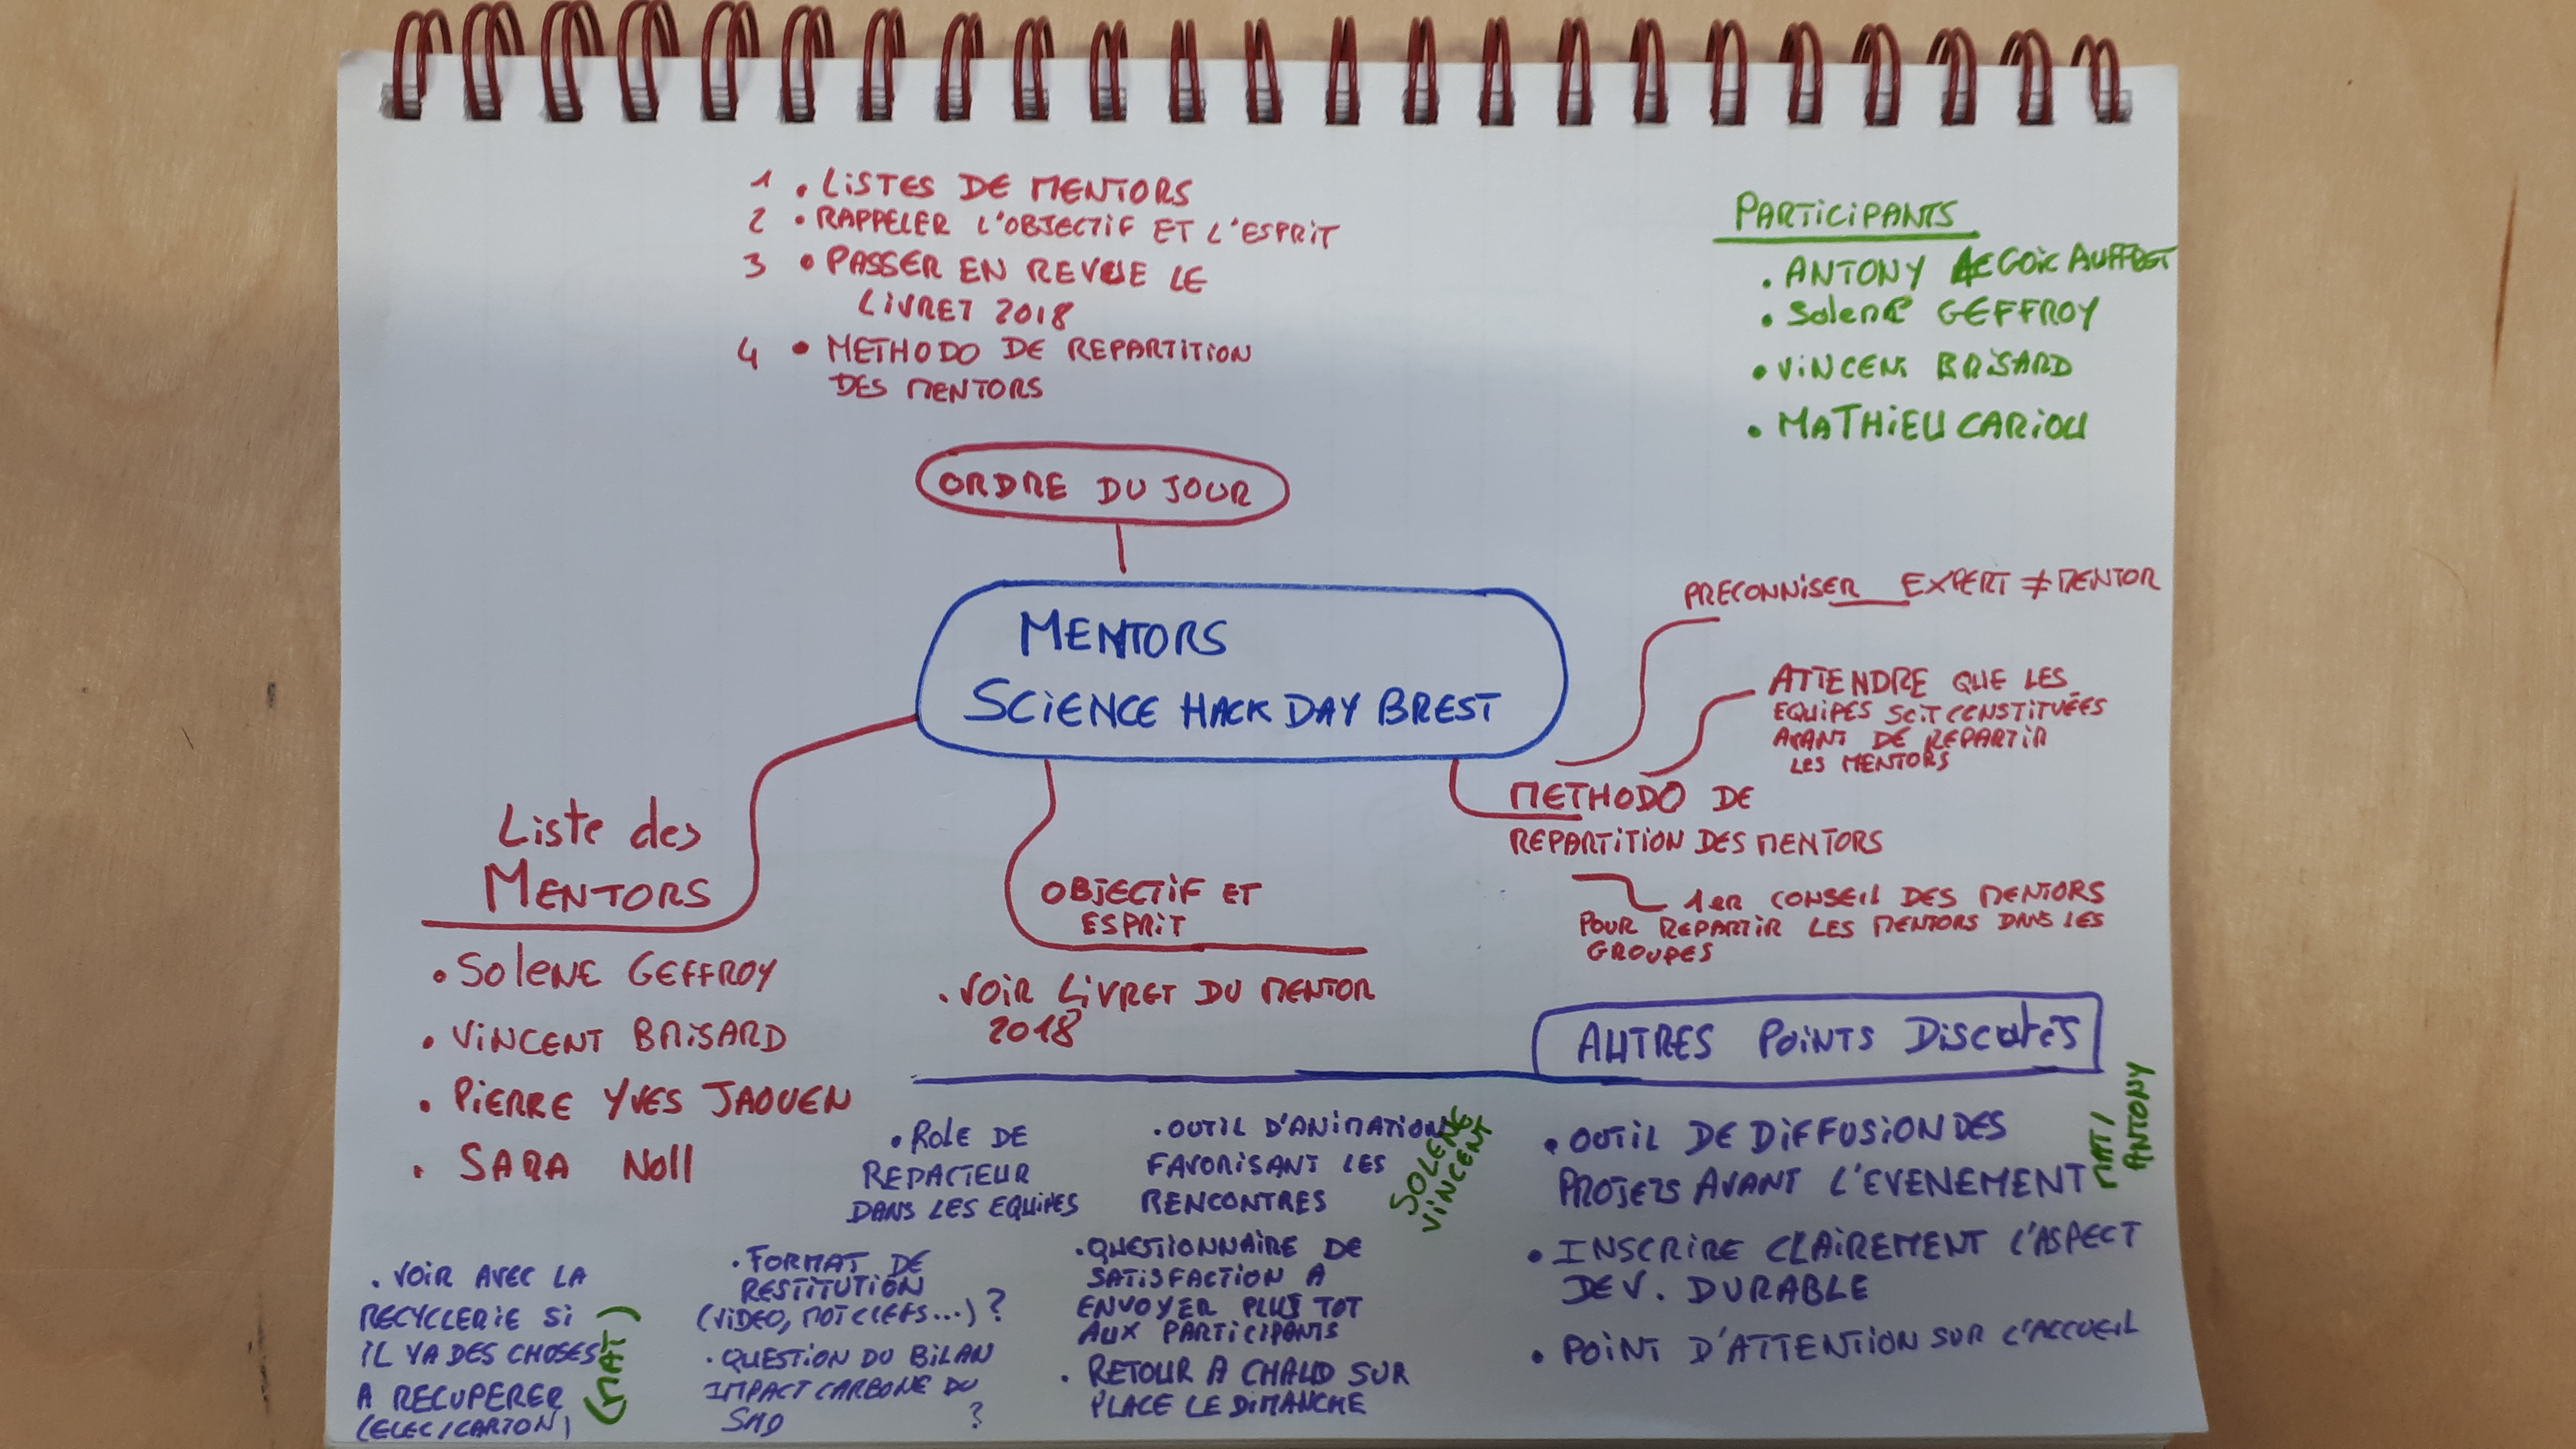 1 . LISTES DE MENTORS
2 . RAPPELER L'OBJECTIF ET L'ESPRIT
3 . PASSER EN REVUE LE
LIVRET 2018
4 . METHODO DE REPARTITION
DES MENTORS
PARTICIPANTS
. ANTONY AUFFRET
. Solene GEFFROY
. VINCENT BRISARD
. MATHIEU CARIOU
ORDRE DU JOUR
MENTORS
SCIENCE HACK DAY BREST
PRECONNISER EXPERT ≠ MENTOR
ATTENDRE QUE LES
EQUIPES SOIT CONSTITUÉES
AVANT DE REPARTIR
LES MENTORS
METHODO DE
REPARTITION DES MENTORS
1er CONSEIL DES MENTORS
POUR REPARTIR LES MENTORS DANS LES
GROUPES
Liste des
MENTORS
. SOLENE GEFFROY
. VINCENT BRISARD
. PIERRE YVES JAOUEN
. SARA Noll
OBJECTIF ET
ESPRIT
. VOIR LIVRET DU MENTOR
2018
AUTRES POINTS DISCUTES
. OUTIL DE DIFFUSION DES
PROJETS AVANT L'EVENEMENT
MAT /
ANTONY
. INSCRIRE CLAIREMENT L'ASPECT
DEV. DURABLE
. POINT D'ATTENTION SUR L'ACCUEIL
. OUTIL D'ANIMATION
FAVORISANT LES
RENCONTRES
SOLENE
VINCENT
. QUESTIONNAIRE DE
SATISFACTION A
ENVOYER PLUS TOT
AUX PARTICIPANTS
. RETOUR A CHAUD SUR
PLACE LE DIMANCHE
. Role DE
REPACTEUR
DANS LES EQUIPES
. FORMAT DE
RESTITUTION
(VIDEO, MOT CLEFS...) ?
. QUESTION DU BILAN
IMPACT CARBONE DU
SHD ?
. VOIR AVEC LA
RECYCLERIE SI
IL YA DES CHOSES
A RECUPERER
(ELEC/CARTON)
(MAT)